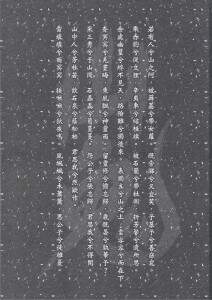 若有人兮山之阿　被薜荔兮帶女羅　既含睇兮又宜笑　子慕予兮善窈窕
乘赤豹兮從文狸　辛夷車兮結桂旗　被石蘭兮帶杜衡　折芳馨兮遺所思
余處幽篁兮終不見天　路險難兮獨後來　表獨立兮山之上　雲容容兮而在下
杳冥冥兮羌晝晦　東風飄兮神靈雨　留靈修兮憺忘歸　歲既晏兮孰華予
采三秀兮于山間　石磊磊兮葛蔓蔓　怨公子兮悵忘歸　君思我兮不得閒
山中人兮芳杜若　飲石泉兮蔭松柏　君思我兮然疑作
雷填填兮雨冥冥　猨啾啾兮狖夜鳴　風颯颯兮木蕭蕭　思公子兮徒離憂